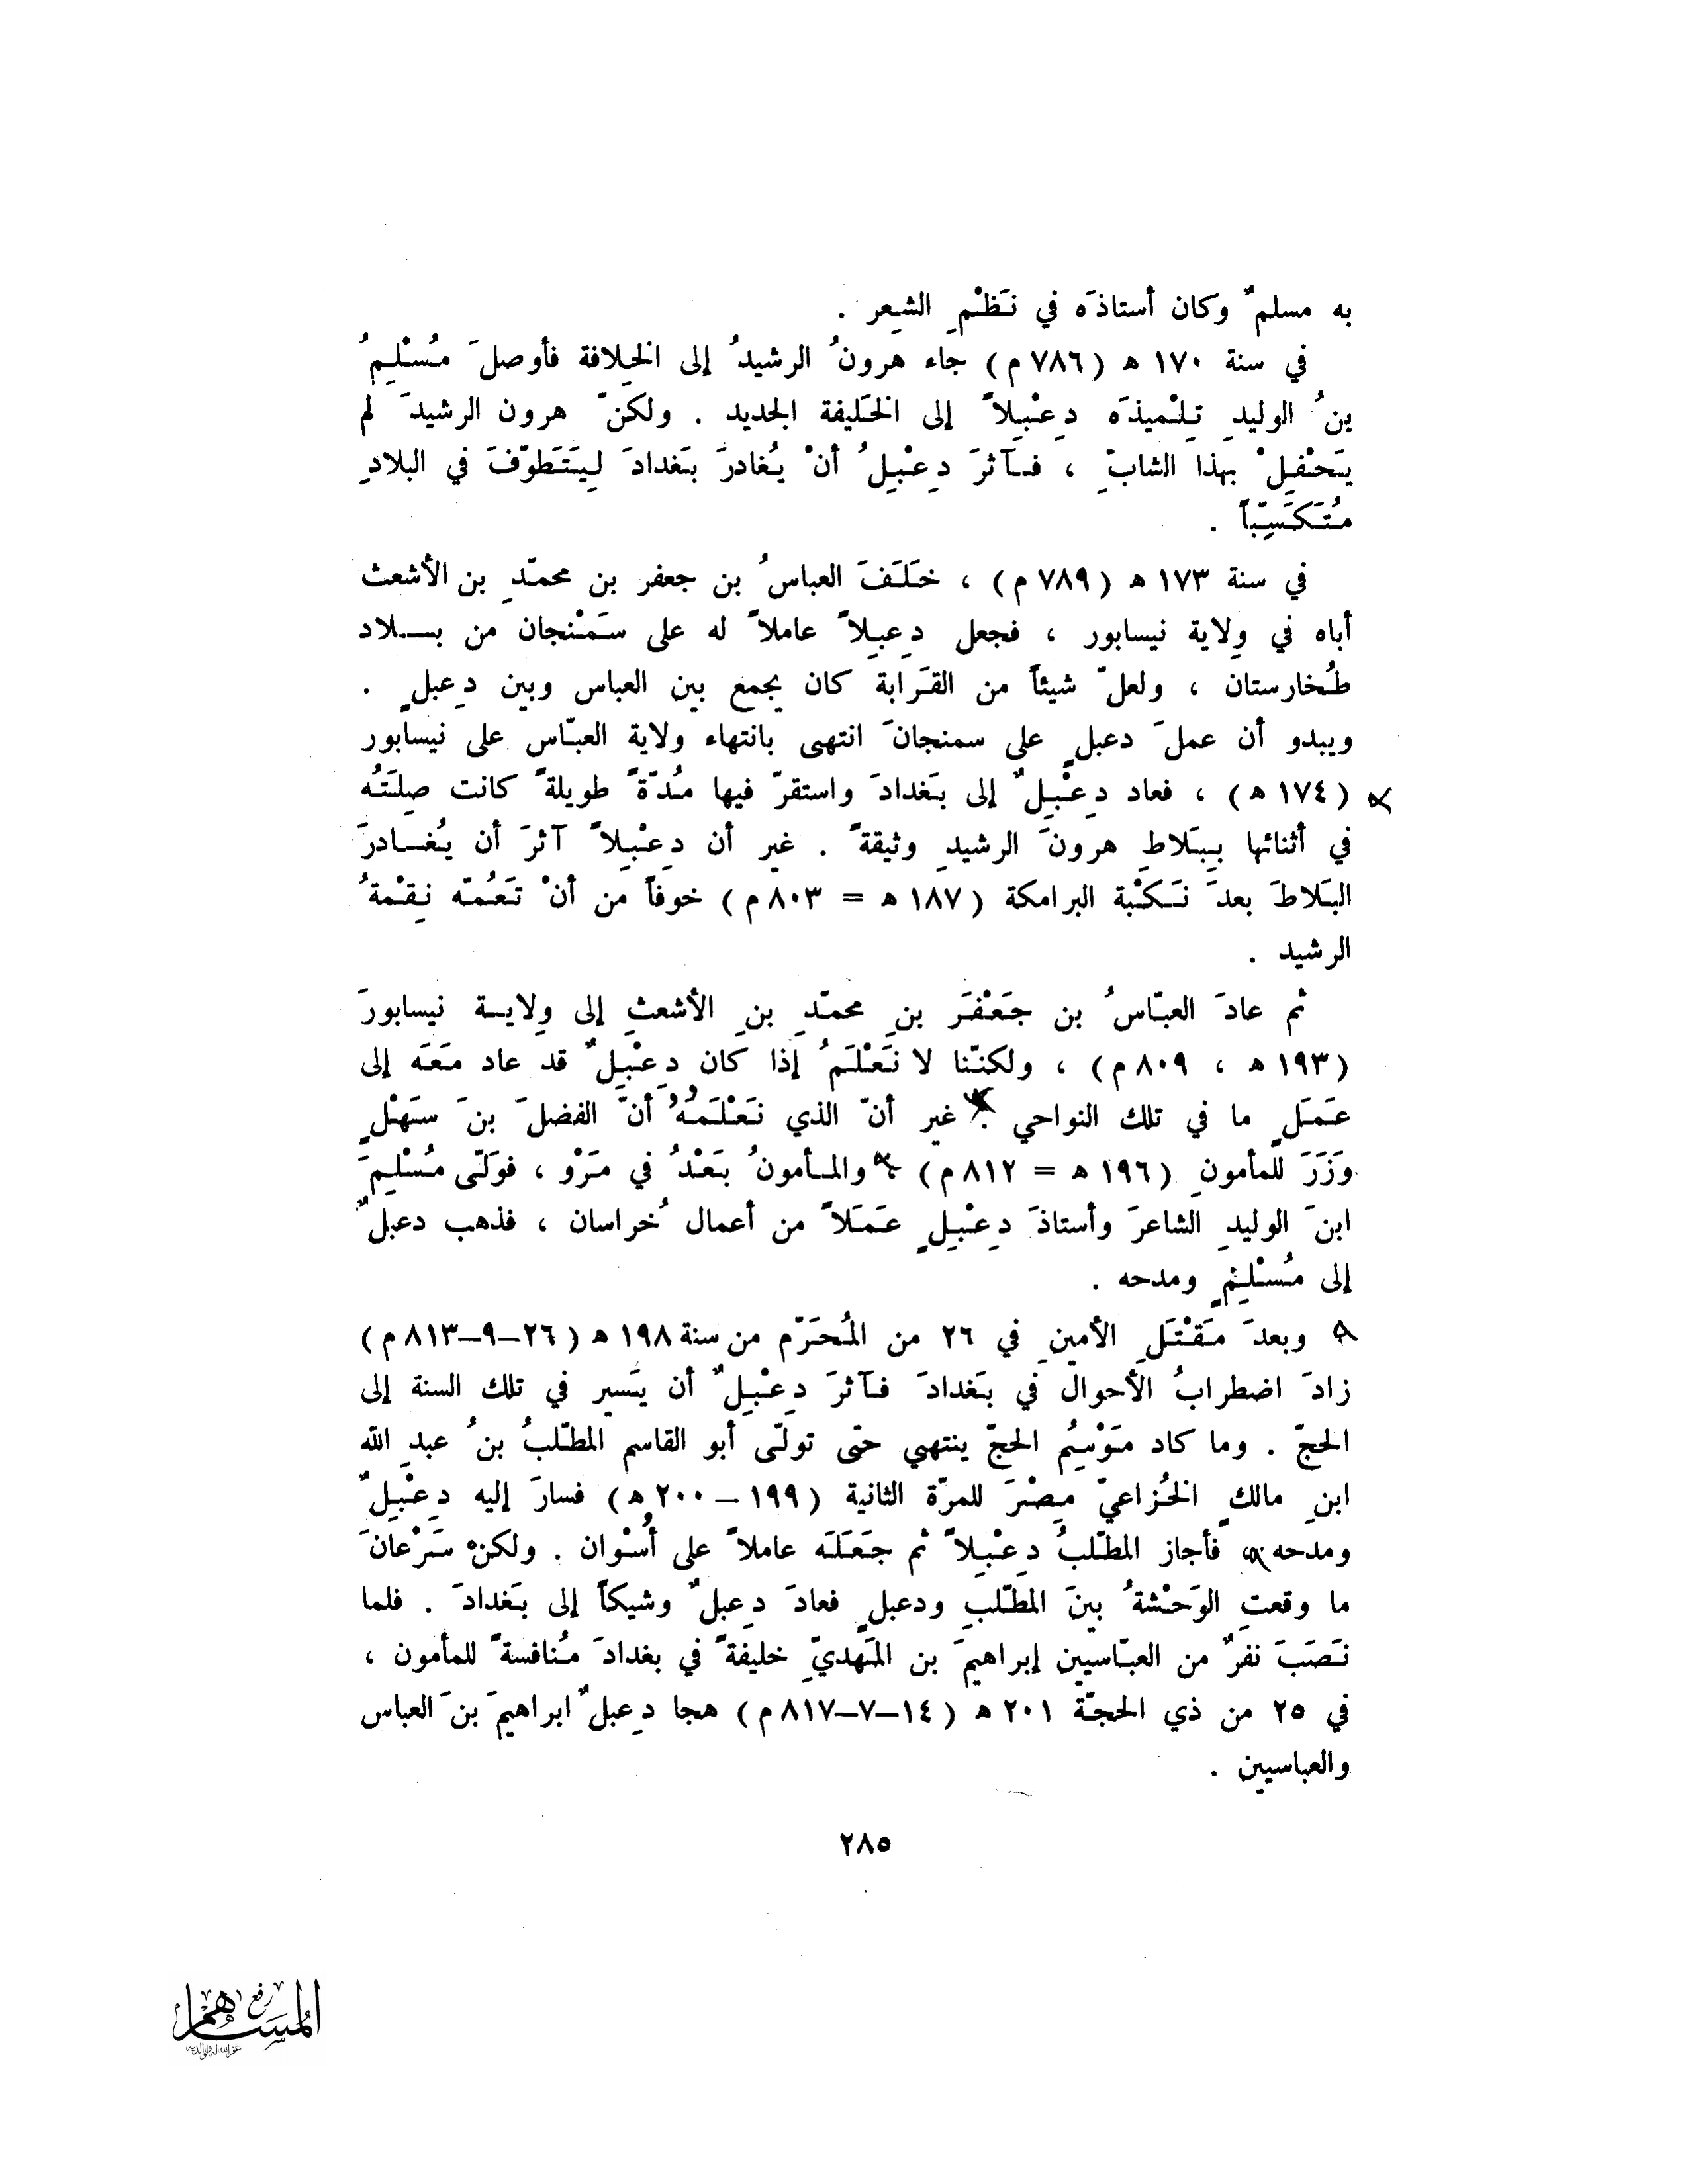 به مسلمٌ وكان أستاذَه في نَظْمِ الشِعر .
في سنة ١٧٠ ه (٧٨٦ م) جاء هرونُ الرشيدُ إلى الخِلافة فأوصلَ مُسْلِمُ
بنُ الوليدِ تِلْميذَه دِعْبِلاً إلى الخَليفة الجديد . ولكنّ هرون الرشيدَ لم
يَحْفِلْ بهذا الشابِّ ، فآثرَ دِعْبِلُ أنْ يُغادرَ بَغدادَ لِيَتَطوّفَ في البلادِ
مُتَكَسِّباً .
في سنة ١٧٣ ه (٧٨٩ م) ، خَلَفَ العباسُ بن جعفر بن محمّدِ بن الأشعث
أباه في وِلاية نيسابور ، فجعل دِعبِلاً عاملاً له على سَمْنجان من بــلاد
طُخارستان ، ولعلّ شيئاً من القَرابة كان يجمع بين العباس وبين دِعبلٍ .
ويبدو أن عملَ دعبلٍ على سمنجانَ انتهى بانتهاء ولاية العبّاسِ على نيسابور
(١٧٤ ه) ، فعاد دِعْبِلٌ إلى بَغدادَ واستقرّ فيها مُدّةً طويلةً كانت صِلَتُه
في أثنائها بِبَلاطِ هرونَ الرشيدِ وثيقةً . غير أن دِعْبِلاً آثرَ أن يُغــادرَ
البَلاطَ بعدَ نَكْبة البرامكة (١٨٧ ه = ٨٠٣ م) خوفاً من أنْ تَعُمّه نِقْمةُ
الرشيد .
ثم عادَ العبّاسُ بن جَعْفَرَ بنِ محمّدِ بنِ الأشعثِ إلى وِلايــة نيسابورَ
(١٩٣ ه ، ٨٠٩ م) ، ولكنّنا لا نَعْلَمُ إذا كان دِعْبِلٌ قد عاد مَعَه إلى
عَمَلٍ ما في تلك النواحي . غير أنّ الذي نَعْلَمُهُ أنّ الفضلَ بنَ سَهْلٍ
وَزَرَ للمأمونِ (١٩٦ ه = ٨١٢ م) والمـأمونُ بَعْدُ في مَرْو ، فوَلّى مُسْلِمَ
ابنَ الوليدِ الشاعرَ وأستاذَ دِعْبِلٍ عَمَلاً من أعمال خُراسان ، فذهب دعبلٌ
إلى مُسْلِمٍ ومدحه .
وبعدَ مَقْتَلِ الأمينِ في ٢٦ من المُحَرّم من سنة ١٩٨ ه (٢٦–٩–٨١٣ م)
زادَ اضطرابُ الأحوال في بَغدادَ فآثرَ دِعْبِلٌ أن يَسير في تلك السنة إلى
الحجّ . وما كاد مَوْسِمُ الحجّ ينتهي حتى تولّى أبو القاسم المطّلبُ بنُ عبدِ الله
ابنِ مالكٍ الخُزاعيّ مِصْرَ للمرّة الثانية (١٩٩ – ٢٠٠ ه) فسارَ إليه دِعْبِلٌ
ومدحه ، فأجاز المطّلبُ دِعْبِلاً ثم جَعَلَه عاملاً على أُسْوان . ولكنْ سَرْعانَ
ما وقعتِ الوَحْشةُ بينَ المطّلبِ ودعبلٍ فعادَ دِعبلٌ وشيكاً إلى بَغدادَ . فلما
نَصَبَ نفرٌ من العبّاسيين إبراهيمَ بن المَهديّ خليفةً في بغدادَ مُنافسةً للمأمون ،
في ٢٥ من ذي الحجّة ٢٠١ ه (١٤–٧–٨١٧ م) هجا دِعبلٌ ابراهيمَ بنَ العباس
والعباسيين .
٢٨٥
رفع
المساهم
غفر الله له ولوالديه